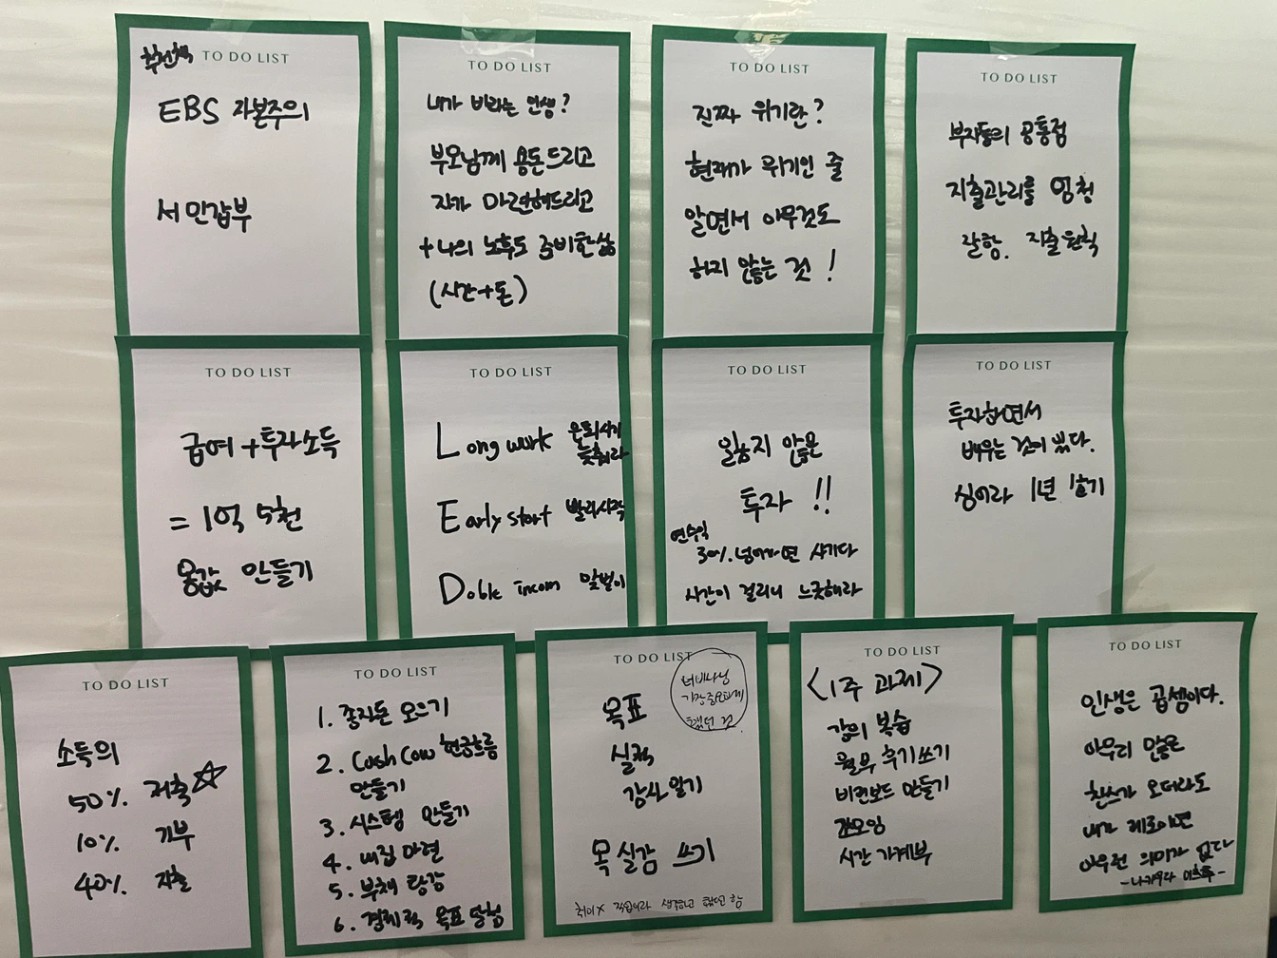 TO DO LIST
추천책
EBS 자본주의
서민갑부
TO DO LIST
내가 바라는 인생?
부모님께 용돈드리고
자가 마련해드리고
+나의 노후도 준비한삶
(시간+돈)
TO DO LIST
진짜 위기란?
현재가 위기인 줄
알면서 아무것도
하지 않는 것!
TO DO LIST
부자들의 공통점
지출관리를 엄청
잘함. 지출원칙
TO DO LIST
급여+투자소득
= 1억 5천
몸값 만들기
TO DO LIST
Long work 은퇴시기 늦춰라
Early start 빨리시작
Doble incom 맞벌이
TO DO LIST
잃지 않은
투자!!
연수익
30%. 넘어가면 사기다
시간이 걸리니 느긋해라
TO DO LIST
투자하면서
배우는 것이 있다.
싱어라 1년 1호기
TO DO LIST
소득의
50%. 저축☆
10%. 기부
40%. 지출
TO DO LIST
1. 종자돈 모으기
2. Cash Cow 현금흐름
만들기
3. 시스템 만들기
4. 내집마련
5. 부채 탕감
6. 경제적 목표 달성
TO DO LIST
너바나님
목표
실적
감사 일기
목실감 쓰기
취미X 직업이라 생각하고
TO DO LIST
<1주 과제>
강의 복습
월부 후기쓰기
비전보드 만들기
조모임
시간 가계부
TO DO LIST
인생은 곱셈이다.
아무리 많은
찬스가 오더라도
내가 제로이면
아무런 의미가 없다